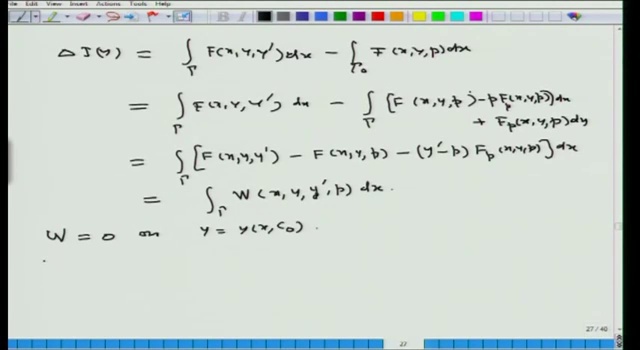 File View Insert Actions Tools Help
Δ J(y) = ∫_Γ F(x, y, y') dx − ∫_Γ₀ F(x, y, p) dx
= ∫_Γ F(x, y, y') dx − ∫_Γ [F(x, y, p) − p F_p(x, y, p)] dx
+ F_p(x, y, p) dy
= ∫_Γ [F(x, y, y') − F(x, y, p) − (y' − p) F_p(x, y, p)] dx
= ∫_Γ W(x, y, y', p) dx.
W = 0 on y = y(x, C₀).
27 / 40
27